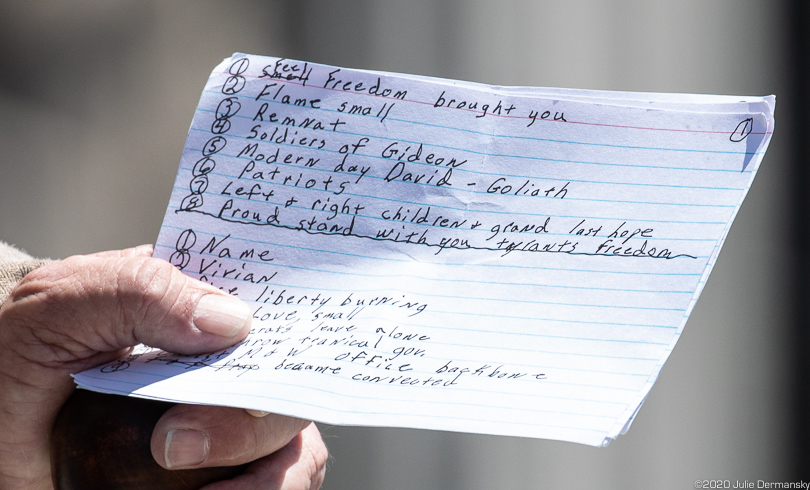 ① Feel Freedom brought you
② Flame small
①
③ Remnat
④ Soldiers of Gideon
⑤ Modern day David - Goliath
⑥ Patriots
⑦ Left & right children & grand last hope
⑧ Proud stand with you tyrants freedom
① Name
② Vivian
liberty burning
Love, small
leave alone
tyranical gov.
M & W office backbone
became convected
©2020 Julie Dermansky